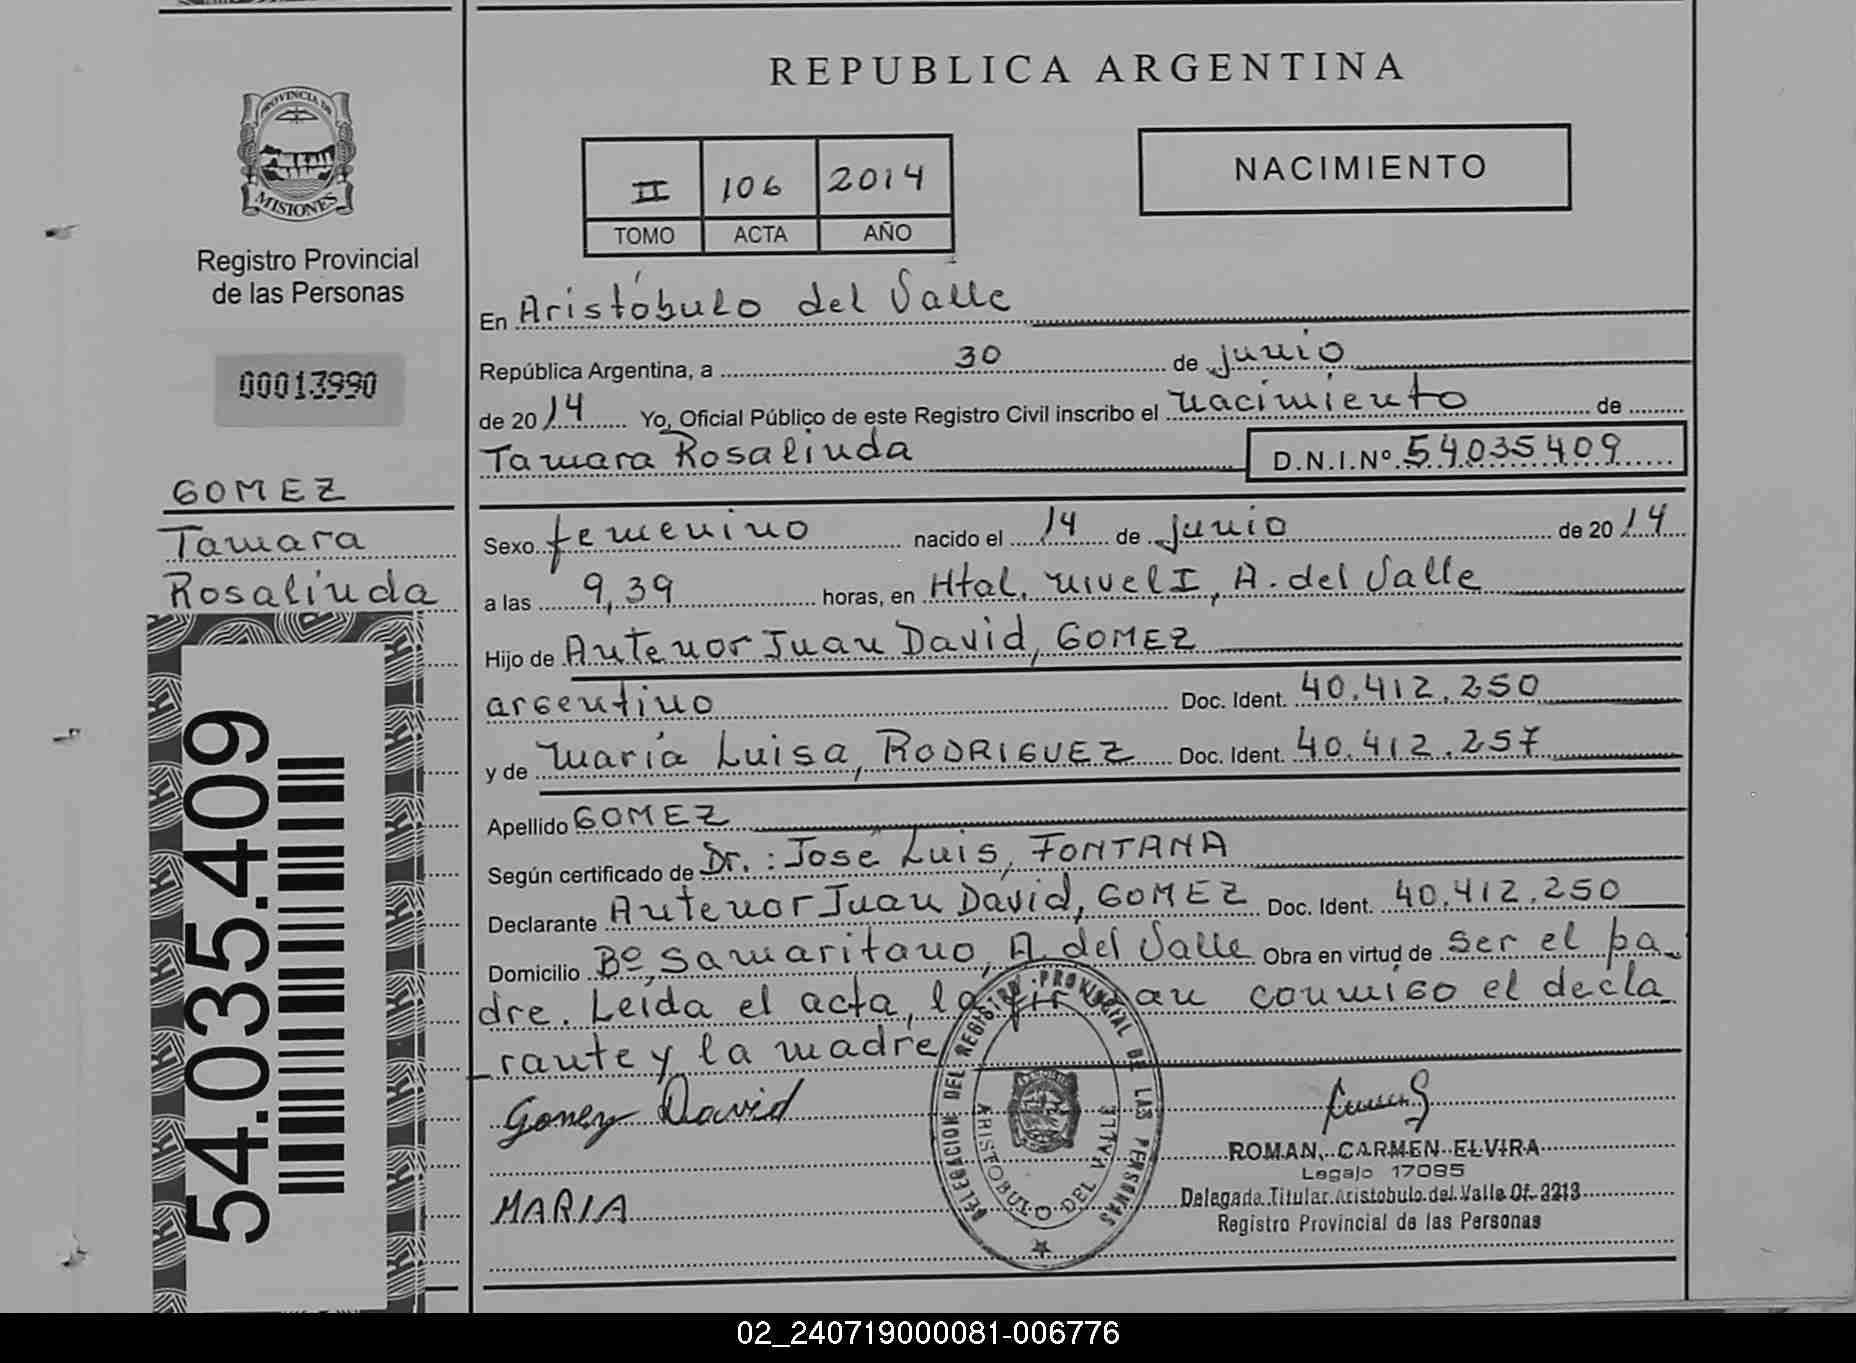 REPUBLICA ARGENTINA
PROVINCIA DE
MISIONES
Registro Provincial
de las Personas
00013990
GOMEZ
Tamara
Rosalinda
54.035.409
II 106 2014
TOMO ACTA AÑO
NACIMIENTO
En Aristóbulo del Valle
República Argentina, a 30 de junio
de 2014 Yo, Oficial Público de este Registro Civil inscribo el nacimiento de
Tamara Rosalinda D.N.I.Nº 54035409
Sexo femenino nacido el 14 de junio de 2014
a las 9,39 horas, en Htal. nivel I, A. del Valle
Hijo de Antenor Juan David, GOMEZ
argentino Doc. Ident. 40.412.250
y de María Luisa, RODRIGUEZ Doc. Ident. 40.412.257
Apellido GOMEZ
Según certificado de Dr.: José Luis, FONTANA
Declarante Antenor Juan David, GOMEZ Doc. Ident. 40.412.250
Domicilio Bº Samaritano, A. del Valle Obra en virtud de ser el pa_
dre. Leída el acta, la firman conmigo el decla
_rante y la madre
Gomez David
MARIA
DELEGACION DEL REGISTRO PROVINCIAL DE LAS PERSONAS
ARISTOBULO DEL VALLE
ROMAN, CARMEN ELVIRA
Legajo 17095
Delegada Titular Aristobulo del Valle Of. 2213
Registro Provincial de las Personas
02_240719000081-006776